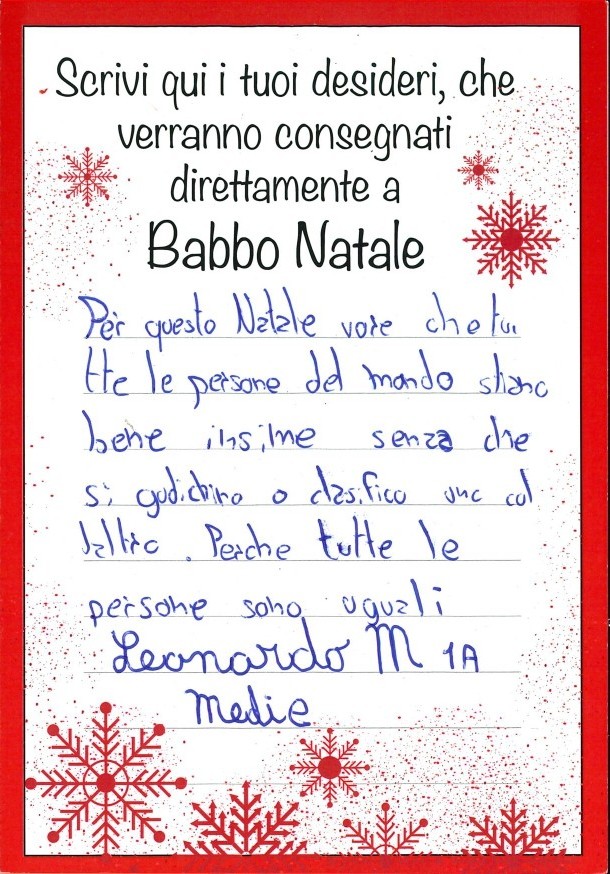 Scrivi qui i tuoi desideri, che
verranno consegnati
direttamente a
Babbo Natale
Per questo Natale vore che tu
tte le persone del mondo stiano
bene insime senza che
si gudichino o clasifico uno col
laltro. Perche tutte le
persone sono uguali
Leonardo M 1A
Medie